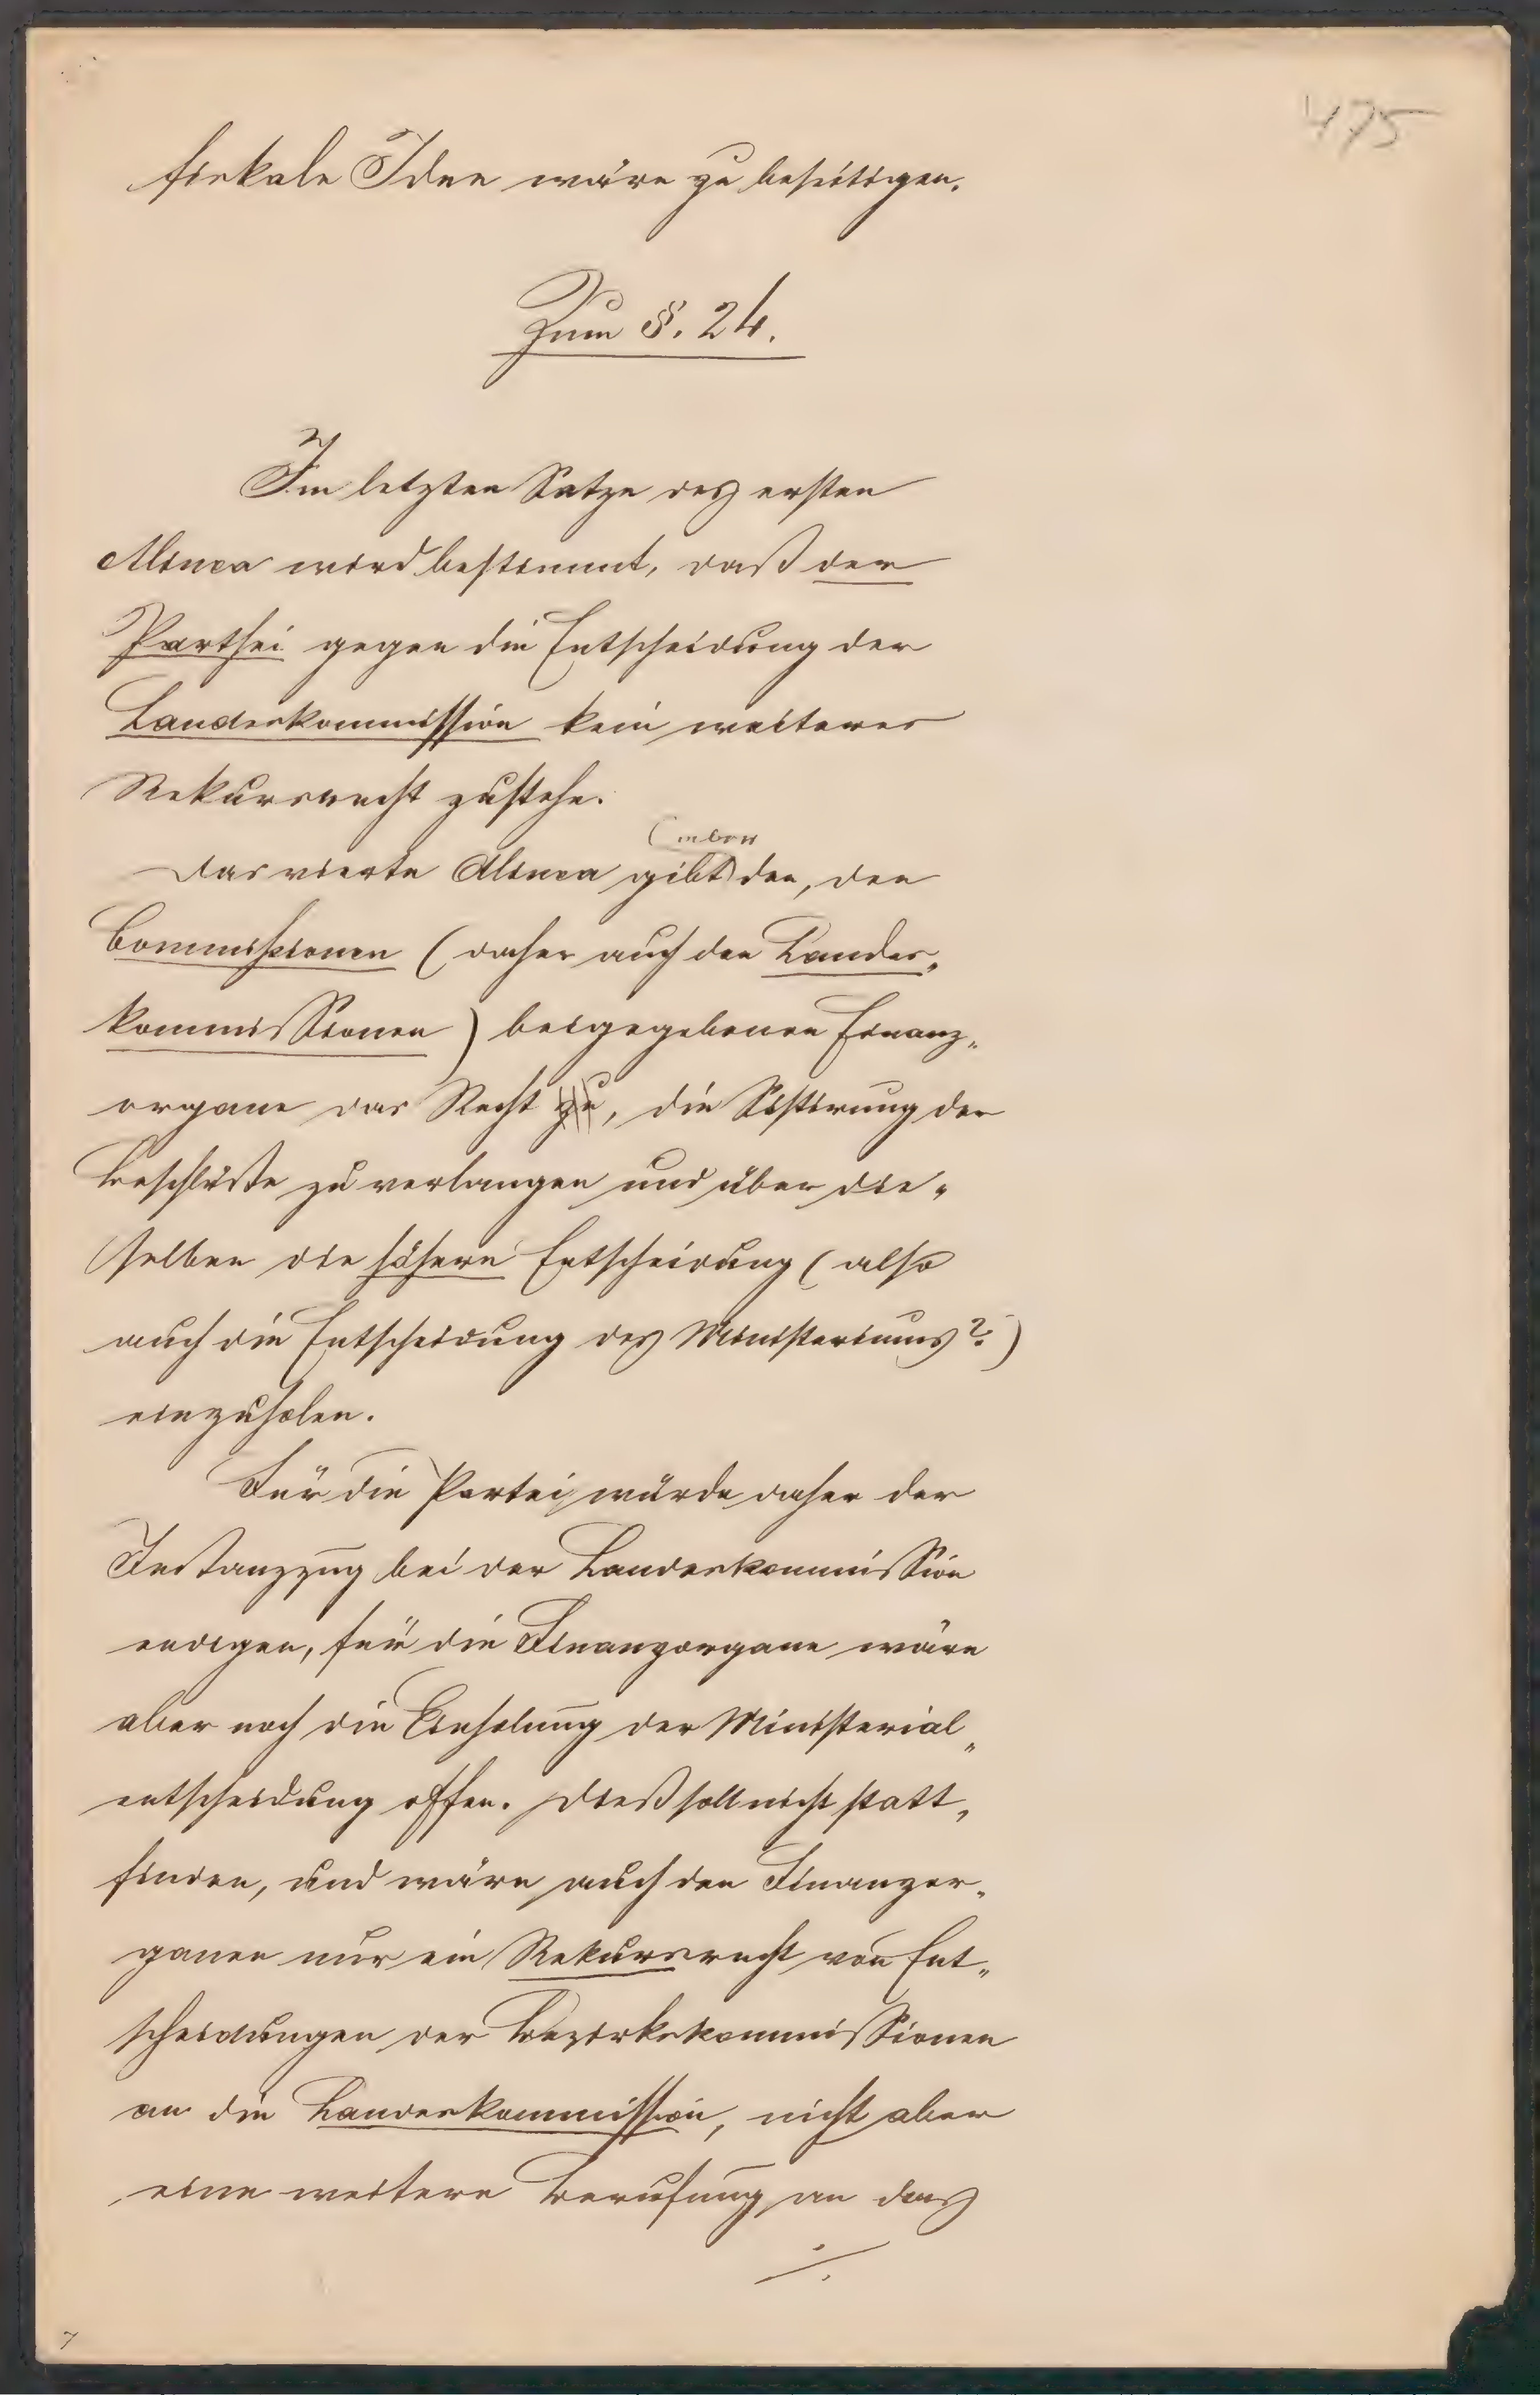 475
fiskale Idee wäre zu beseitigen.
Zum §. 24.
Im letzten Satze des ersten
Alinea wird bestimmt, daß der
Parthei gegen die Entscheidung der
Landeskommission kein weiteres
Rekursrecht zustehe.
Das vierte Alinea gibt den, den
Commissionen (daher auch den Landes„
kommissionen) beigegebenen Finanz„
organe das Recht zu, die Sistirung der
Beschlüße zu verlangen und über die„
selben die höhere Entscheidung (also
auch die Entscheidung des Ministeriums?)
einzuholen.
Für die Partei würde daher der
Instanzzug bei der Landeskommission
endigen, für die Finanzorgane wäre
aber noch die Einholung der Ministerial„
entscheidung offen. Dieß soll nicht statt„
finden, und wäre auch den Finanzor„
ganen nur ein Rekursrecht von Ent„
scheidungen der Bezirkskommissionen
an die Landeskommission, nicht aber
eine weitere Berufung an das
./.
7